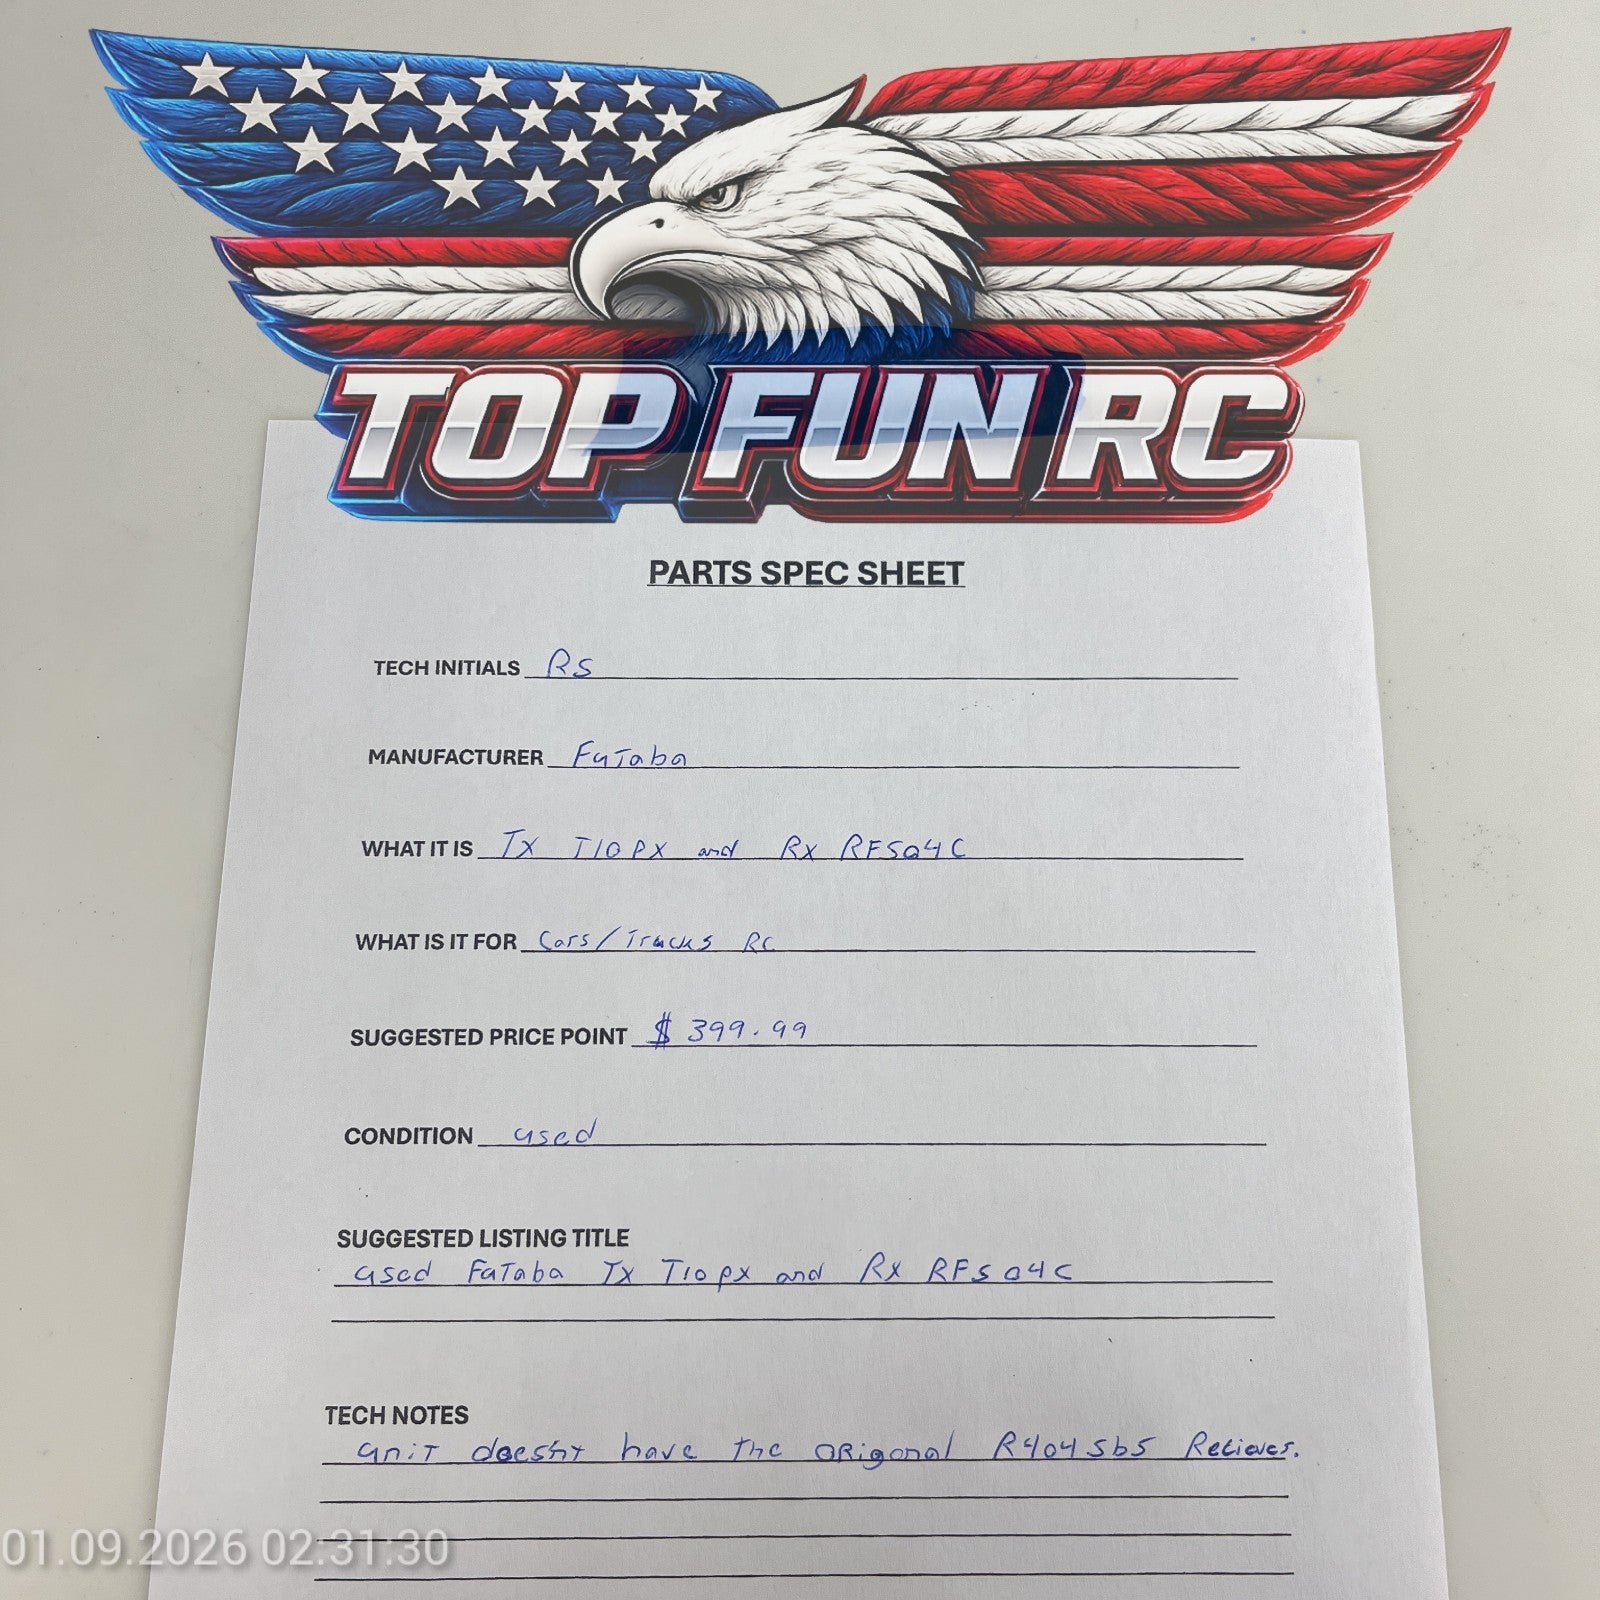 TOP FUN RC
PARTS SPEC SHEET
TECH INITIALS RS
MANUFACTURER Futaba
WHAT IT IS Tx T10PX and Rx RFS04C
WHAT IS IT FOR Cars/Trucks RC
SUGGESTED PRICE POINT $ 399.99
CONDITION used
SUGGESTED LISTING TITLE
used Futaba Tx T10px and Rx RFS04C
TECH NOTES
unit doesnt have the origonal R404sbs Reciever.
01.09.2026 02:31:30